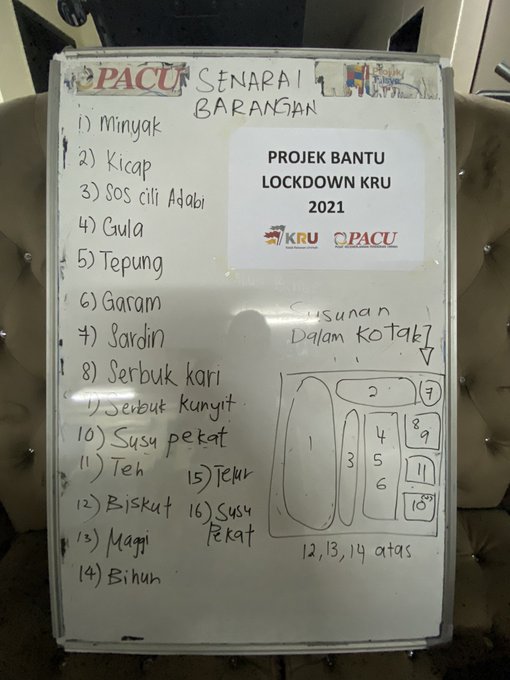 PACU
SENARAI
BARANGAN
1) Minyak
2) Kicap
3) Sos cili Adabi
4) Gula
5) Tepung
6) Garam
7) Sardin
8) Serbuk kari
9) Serbuk kunyit
10) Susu pekat
11) Teh
12) Biskut
13) Maggi
14) Bihun
15) Telur
16) Susu
Pekat
PROJEK BANTU
LOCKDOWN KRU
2021
KRU
PACU
Susunan
Dalam KOTAK
1
2
7
3
4
5
6
8
9
11
10
12, 13, 14 atas